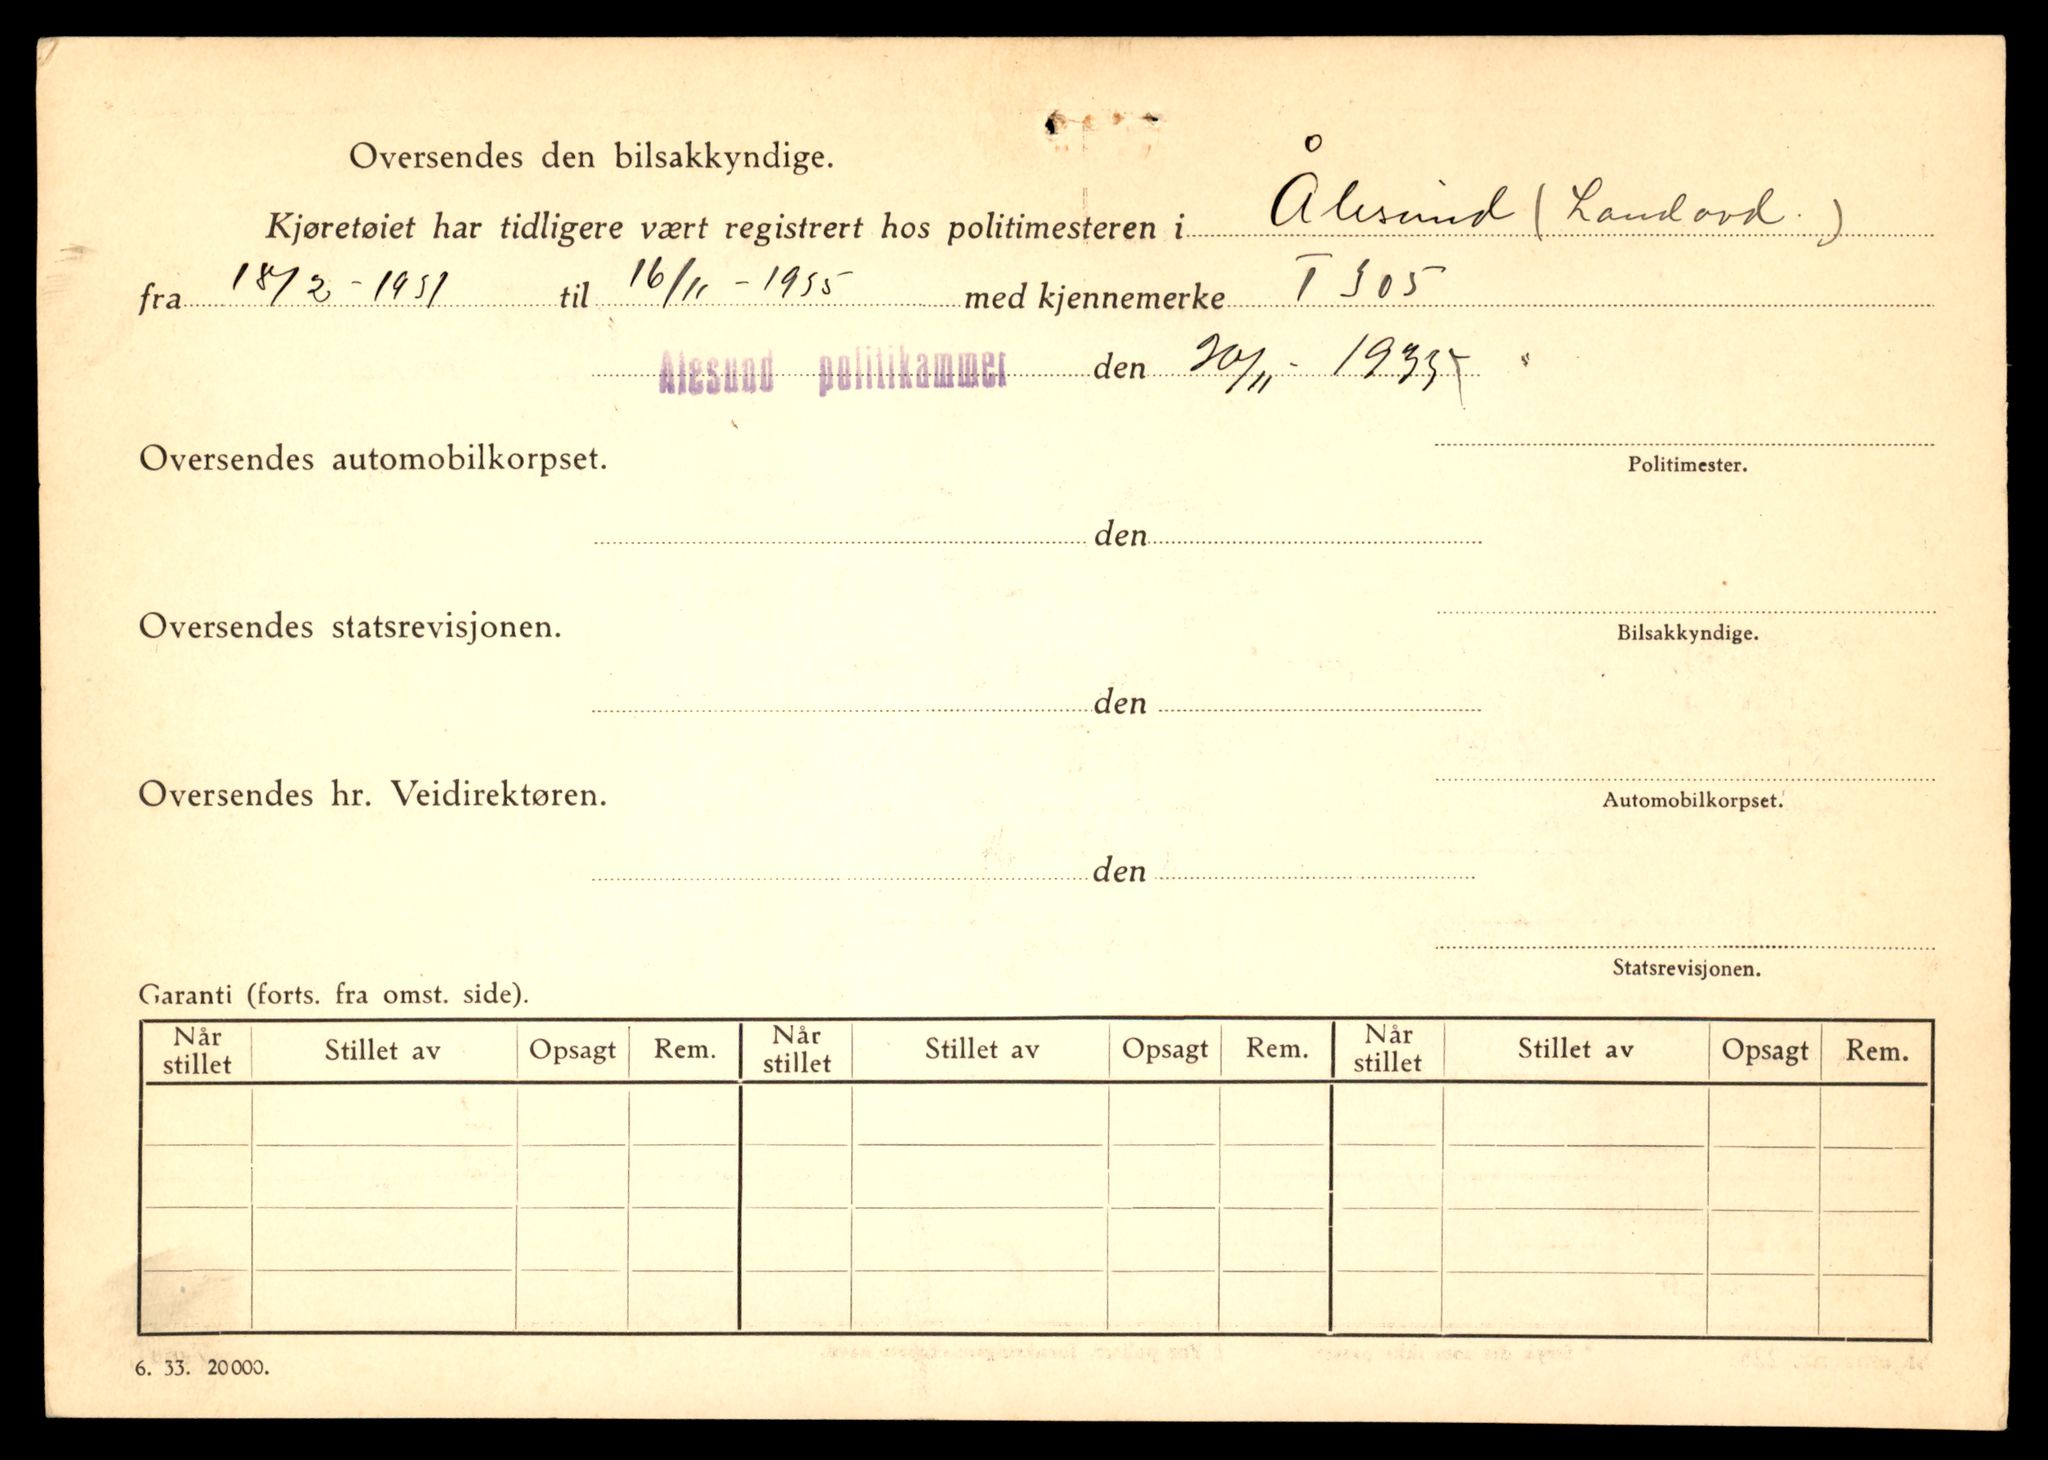 Oversendes den bilsakkyndige.
Kjøretøiet har tidligere vært registrert hos politimesteren i Ålesund (Landavd.)
fra 18/2 - 1931 til 16/11 - 1935 med kjennemerke T 305
Alesund politikammer den 20/11 - 1935
Oversendes automobilkorpset.
Politimester.
den
Oversendes statsrevisjonen.
Bilsakkyndige.
den
Oversendes hr. Veidirektøren.
Automobilkorpset.
den
Statsrevisjonen.
Garanti (forts. fra omst. side).
Når stillet Stillet av Opsagt Rem. Når stillet Stillet av Opsagt Rem. Når stillet Stillet av Opsagt Rem.
6. 33. 20000.